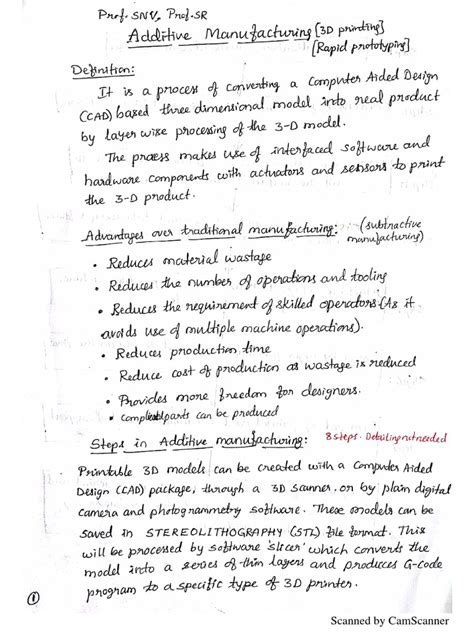 Prof. SNV, Prof. SR
Additive Manufacturing [3D printing]
[Rapid prototyping]
Definition:
It is a process of converting a Computer Aided Design
(CAD) based three dimensional model into real product
by layer wise processing of the 3-D model.
The process makes use of interfaced software and
hardware components with actuators and sensors to print
the 3-D product.
Advantages over traditional manufacturing: (subtractive
manufacturing)
• Reduces material wastage
• Reduces the number of operations and tooling
• Reduces the requirement of skilled operators (As it
avoids use of multiple machine operations).
• Reduces production time
• Reduce cost of production as wastage is reduced
• Provides more freedom for designers.
• parts can be produced
Steps in Additive manufacturing: 8 steps. Detailing not needed
Printable 3D models can be created with a Computer Aided
Design (CAD) package, through a 3D scanner, or by plain digital
camera and photogrammetry software. These models can be
saved in STEREOLITHOGRAPHY (STL) file format. This
will be processed by software 'slicer' which converts the
model into a series of thin layers and produces G-code
program to a specific type of 3D printer.
1
Scanned by CamScanner